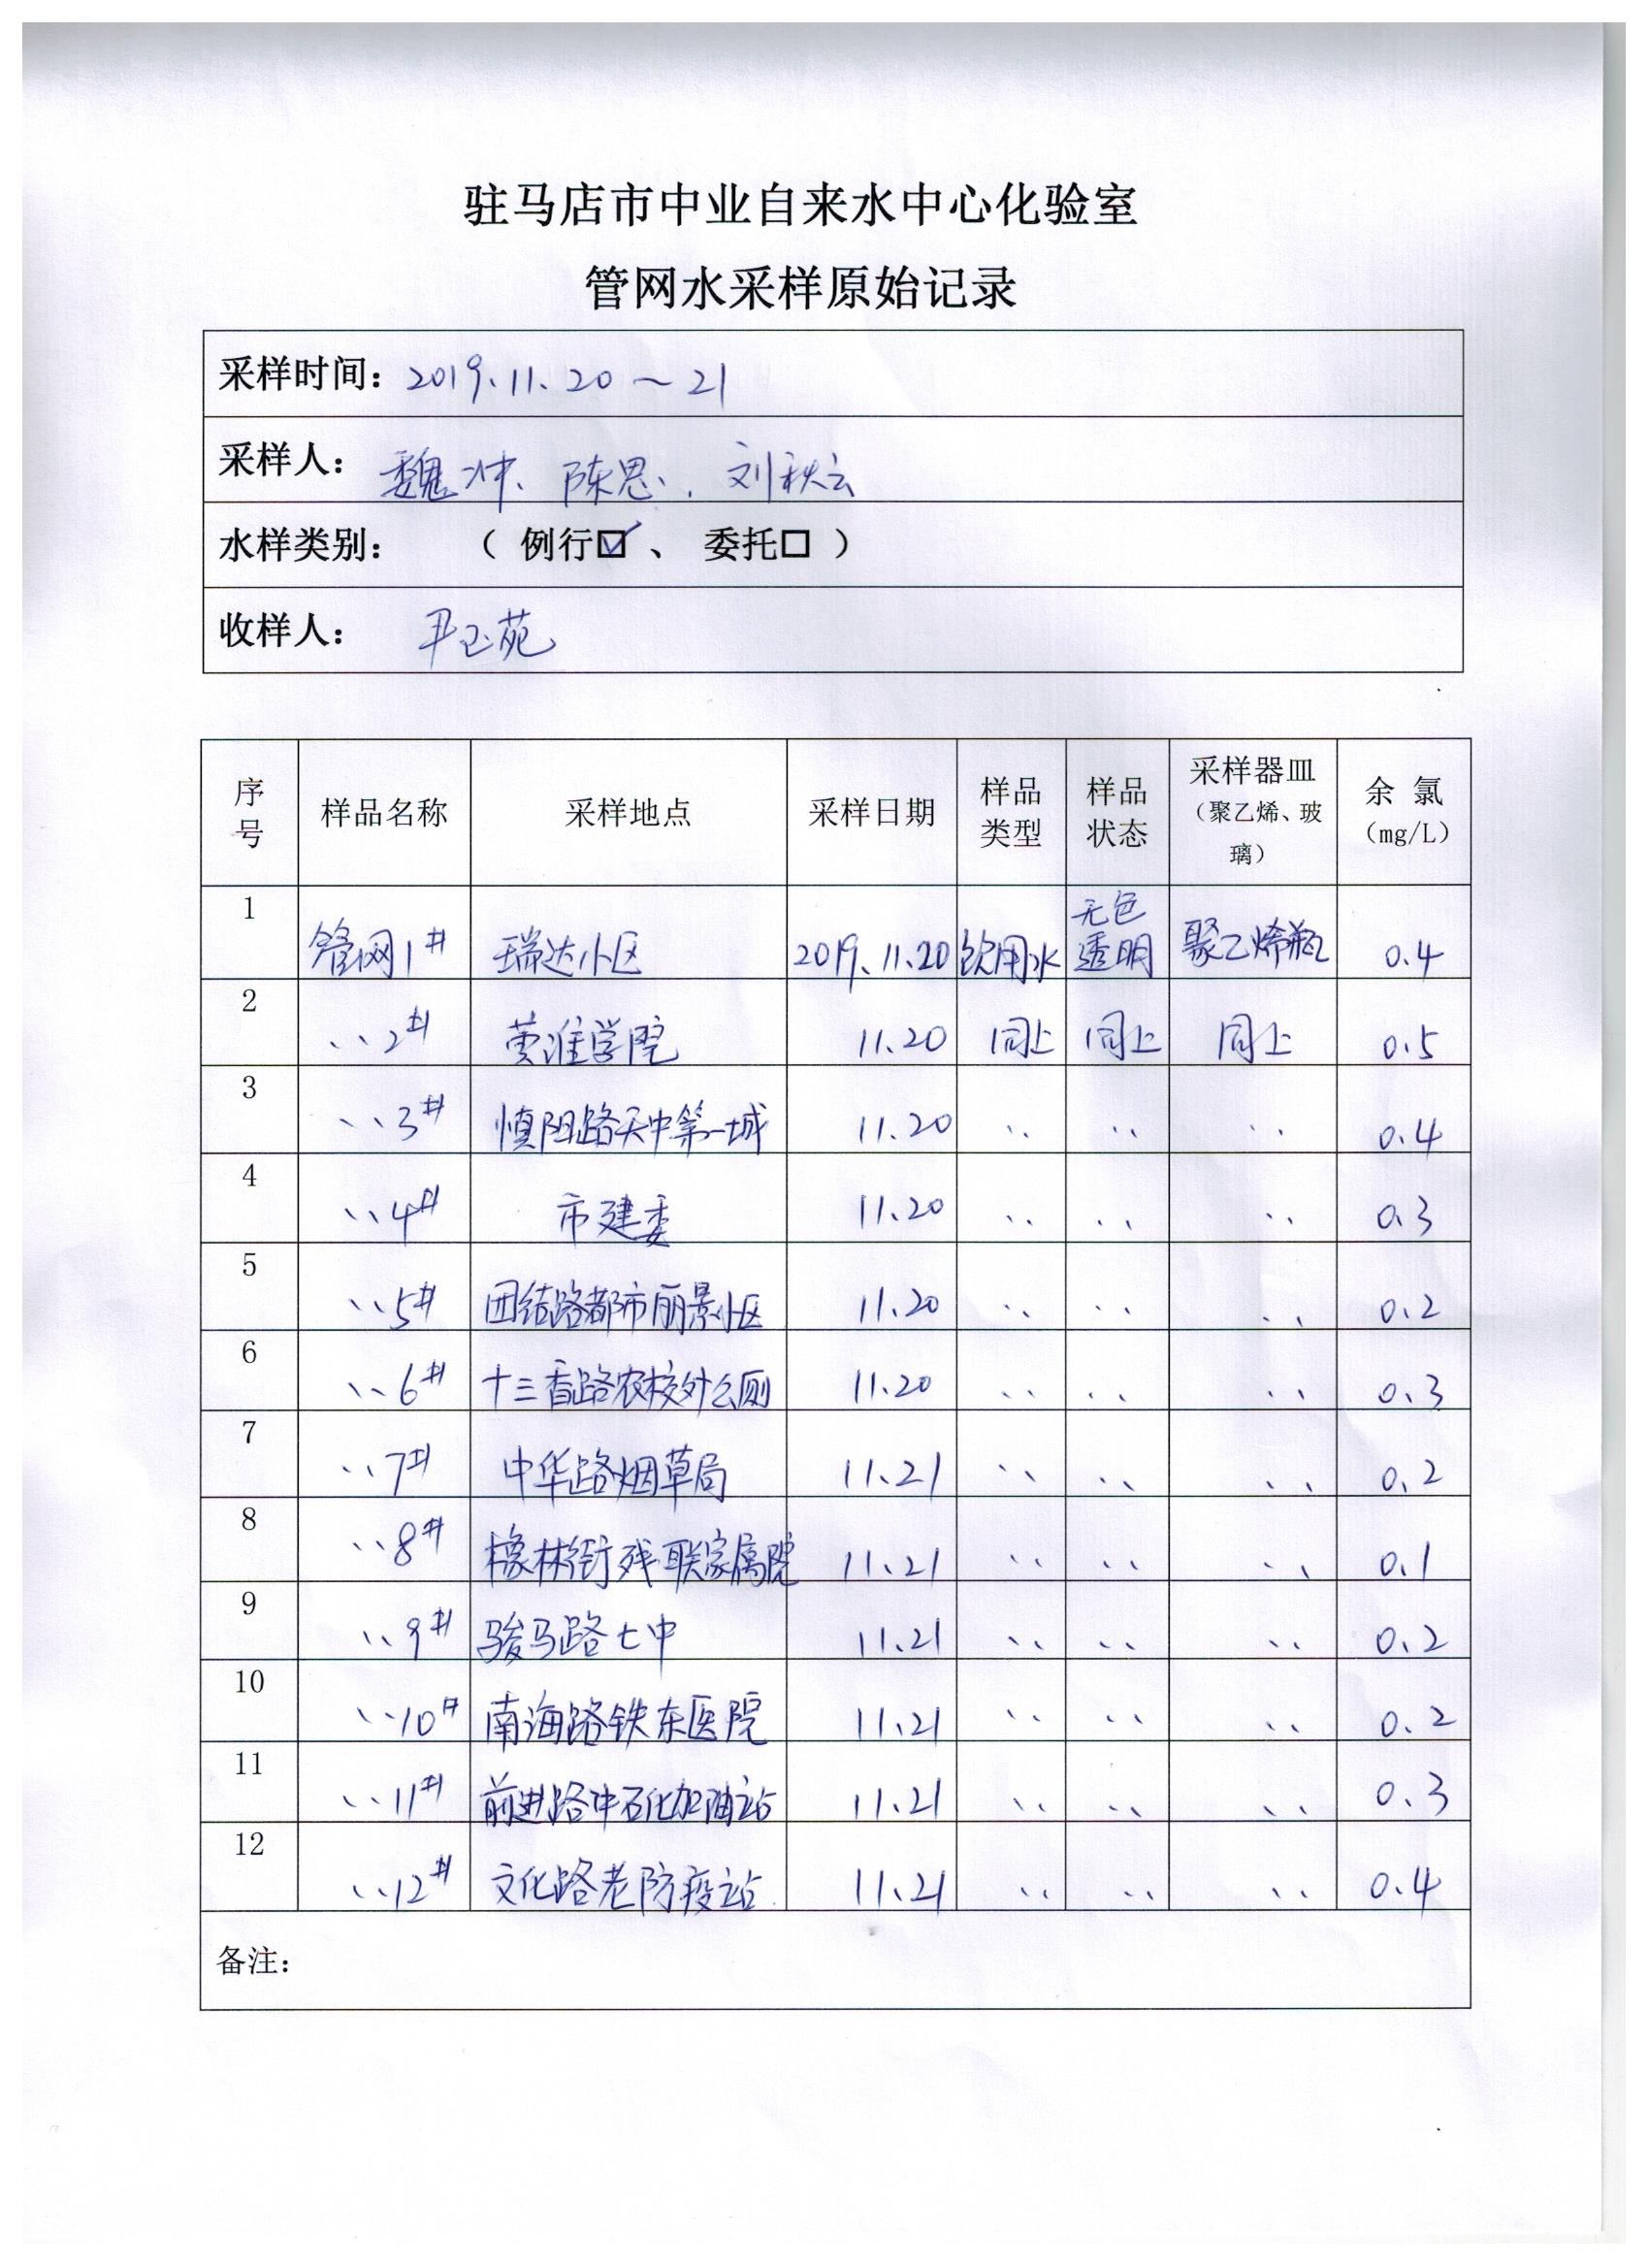 驻马店市中业自来水中心化验室
管网水采样原始记录
采样时间：2019.11.20～21
采样人：魏冲、陈思、刘秋云
水样类别： （ 例行☑ 、 委托□ ）
收样人：尹玉苑
序号 样品名称 采样地点 采样日期 样品类型 样品状态 采样器皿（聚乙烯、玻璃） 余 氯（mg/L）
1 管网1# 瑞达小区 2019.11.20 饮用水 无色透明 聚乙烯瓶 0.4
2 、、2# 黄淮学院 11.20 同上 同上 同上 0.5
3 、、3# 慎阳路天中第一城 11.20 、、 、、 、、 0.4
4 、、4# 市建委 11.20 、、 、、 、、 0.3
5 、、5# 团结路都市丽景小区 11.20 、、 、、 、、 0.2
6 、、6# 十三香路农校外公厕 11.20 、、 、、 、、 0.3
7 、、7# 中华路烟草局 11.21 、、 、、 、、 0.2
8 、、8# 橡林街残联家属院 11.21 、、 、、 、、 0.1
9 、、9# 骏马路七中 11.21 、、 、、 、、 0.2
10 、、10# 南海路铁东医院 11.21 、、 、、 、、 0.2
11 、、11# 前进路中石化加油站 11.21 、、 、、 、、 0.3
12 、、12# 文化路老防疫站 11.21 、、 、、 、、 0.4
备注：